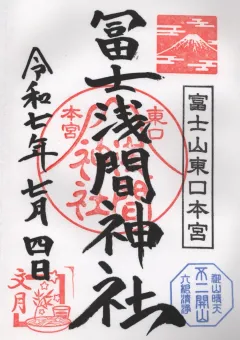 富士山東口本宮
冨士浅間神社
東口
本宮
冨士浅間神社
令和七年七月四日
文月
御山晴天
不二開山
六根清浄